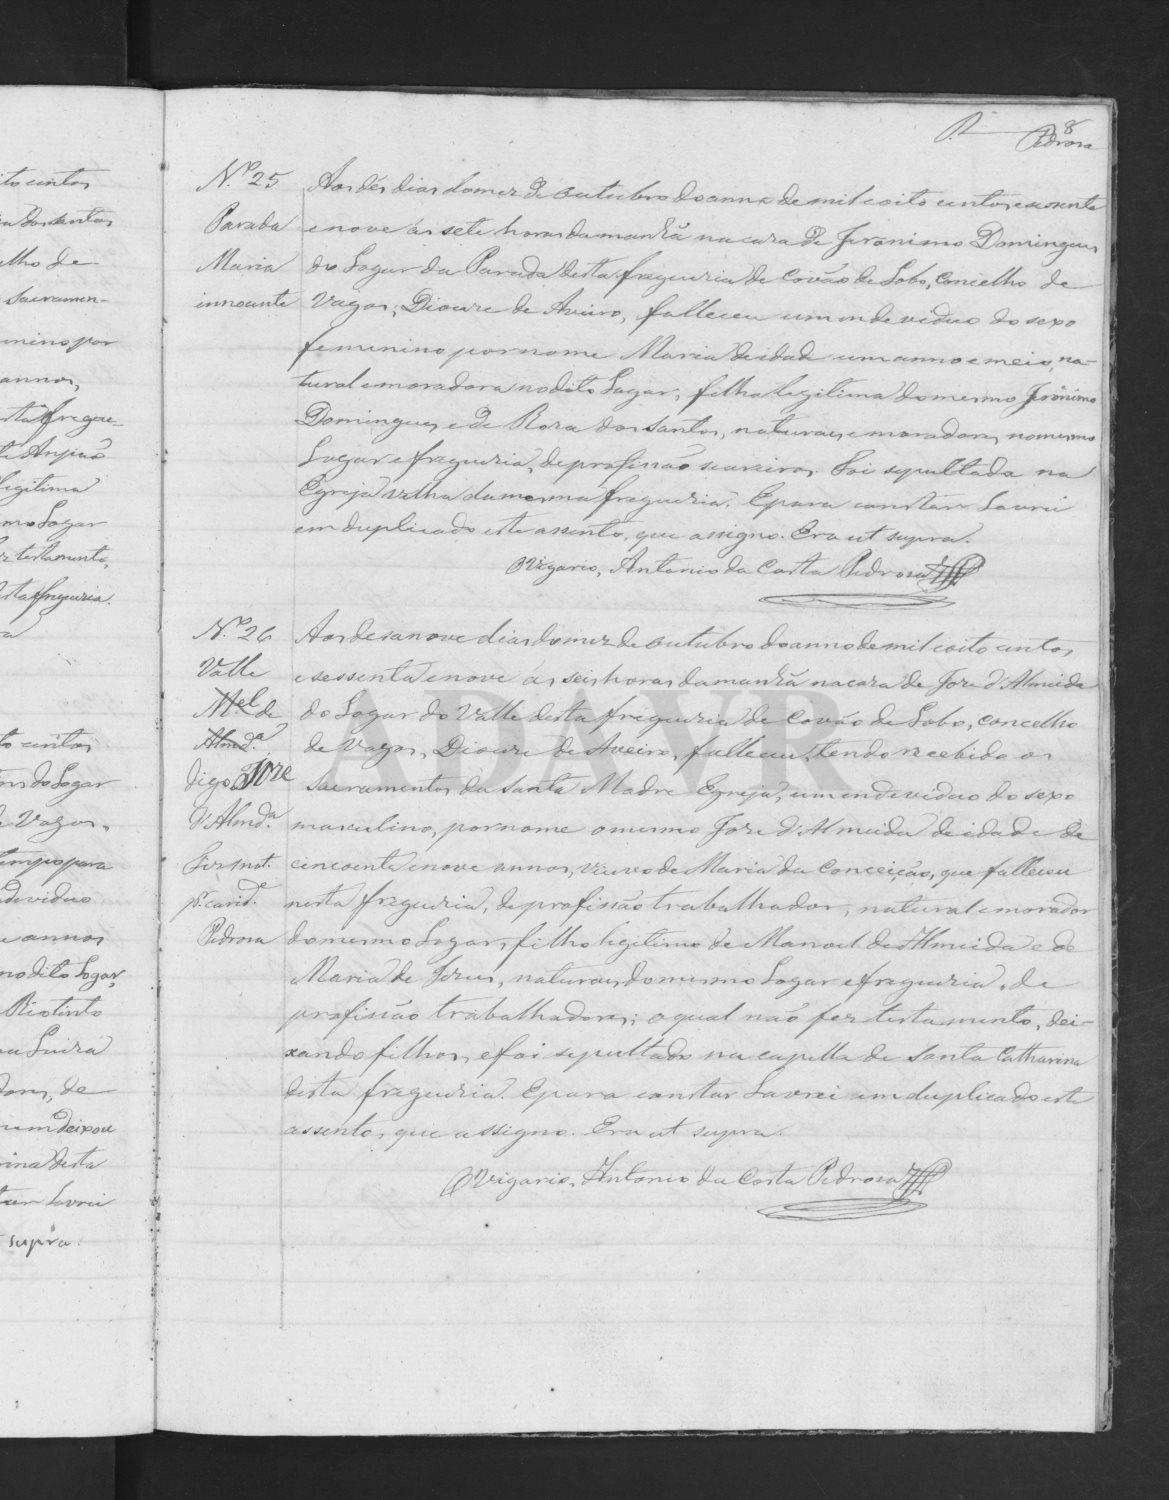 8
Pedrosa
N.º 25
Parada
Maria
innocente
Aos dés dias do mez de Outubro do anno de mil oito centos e sessenta
e nove ás sete horas da manhã na caza de Jeronimo Domingues
do Logar da Parada desta freguezia de Covão de Lobo, Concelho de
Vagos, Diocese de Aveiro, falleceu um indeviduo do sexo
femenino por nome Maria de idade um anno e meio, na-
tural e moradora no dito Logar, filha legitima do mesmo Jeronimo
Domingues e de Roza dos Santos, naturaes e moradores no mesmo
Logar e freguezia, de profissão seareiros. Foi sepultada na
Egreja velha da mesma freguezia. E para constar lavrei
em duplicado este assento, que assigno. Era ut supra.
O Vigario, Antonio da Costa Pedrosa
N.º 26
Valle
M.el de
Almd.ª
digo Joze
d'Almd.ª
Fez inst.
p.r carid.e
Pedrosa
Aos desanove dias do mez de outubro do anno de mil oito centos
e sessenta e nove ás seis horas da manhã na caza de Joze d'Almeida
do Logar do Valle desta freguezia de Covão de Lobo, concelho
de Vagos, Diocese de Aveiro, falleceu, tendo recebido os
Sacramentos da Santa Madre Egreja, um indeviduo do sexo
masculino, por nome o mesmo Joze d'Almeida de idade de
cincoenta e nove annos, viuvo de Maria da Conceição, que falleceu
nesta freguezia, de profissão trabalhador, natural e morador
do mesmo Logar, filho legitimo de Manoel de Almeida e de
Maria de Jezus, naturaes do mesmo Logar e freguezia, de
profissão trabalhadores; o qual não fez testamento, dei-
xando filhos, e foi sepultado na capella de Santa Catharina
desta freguezia. E para constar lavrei em duplicado este
assento, que assigno. Era ut supra.
O Vigario, Antonio da Costa Pedrosa
ADAVR